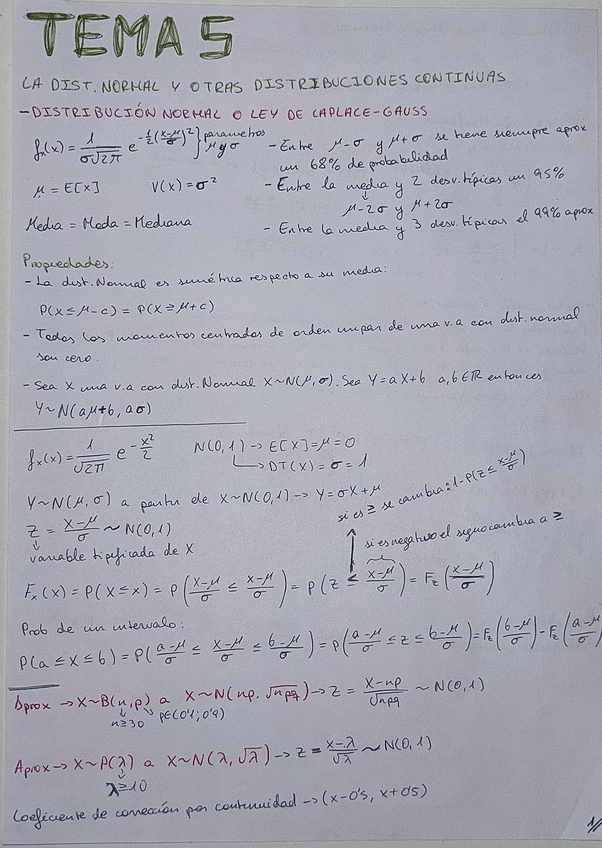 TEMA 5
LA DIST. NORMAL Y OTRAS DISTRIBUCIONES CONTINUAS
- DISTRIBUCIÓN NORMAL O LEY DE LAPLACE-GAUSS
fx(x) = 1/(σ√2π) e^(-½((x-μ)/σ)²) } parámetros μ y σ
- Entre μ-σ y μ+σ se tiene siempre aprox
un 68% de probabilidad
μ = E[X] V(X) = σ²
- Entre la media y 2 desv. típicas un 95%
↓
μ-2σ y μ+2σ
Media = Moda = Mediana
- Entre la media y 3 desv. típicas el 99% aprox
Propiedades:
- La dist. Normal es simétrica respecto a su media:
P(X ≤ μ-c) = P(X ≥ μ+c)
- Todos los momentos centrados de orden impar de una v.a con dist. normal
son cero.
- Sea X una v.a con dist. Normal X~N(μ,σ). Sea Y = aX+b a,b∈ℝ entonces
Y~N(aμ+b, aσ)
fx(x) = 1/√2π e^(-x²/2) N(0,1) → E[X]=μ=0
↳ DT(X) = σ = 1
Y~N(μ,σ) a partir de X~N(0,1) → Y = σX+μ
si es ≥ se cambia: 1-P(Z ≤ (x-μ)/σ)
Z = (X-μ)/σ ~ N(0,1)
↓
variable tipificada de X
si es negativo el signo cambia a ≥
Fx(x) = P(X ≤ x) = P((X-μ)/σ ≤ (x-μ)/σ) = P(Z ≤ (x-μ)/σ) = Fz((x-μ)/σ)
Prob de un intervalo:
P(a ≤ X ≤ b) = P((a-μ)/σ ≤ (X-μ)/σ ≤ (b-μ)/σ) = P((a-μ)/σ ≤ Z ≤ (b-μ)/σ) = Fz((b-μ)/σ) - Fz((a-μ)/σ)
Aprox → X~B(n,p) a X~N(np, √npq) → Z = (X-np)/√npq ~ N(0,1)
n≥30 p∈(0'1; 0'9)
Aprox → X~P(λ) a X~N(λ, √λ) → Z = (X-λ)/√λ ~ N(0,1)
λ≥10
Coeficiente de corrección por continuidad → (x-0'5, x+0'5)
1//